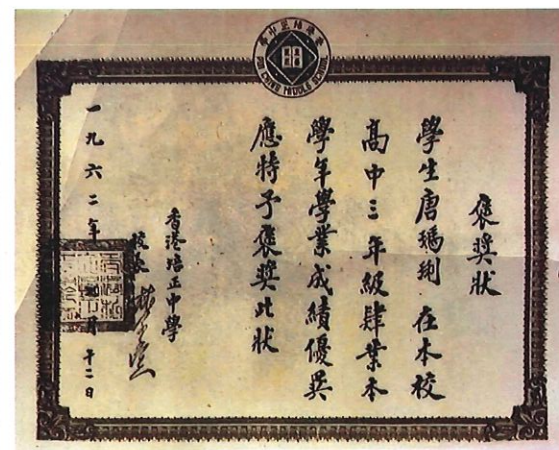 培正中學
PUI CHING MIDDLE SCHOOL
褒獎狀
學生唐瑪琍 在本校
高中三年級肄業本
學年學業成績優異
應特予褒獎此狀
香港培正中學
校長
一九六二年 月十二日